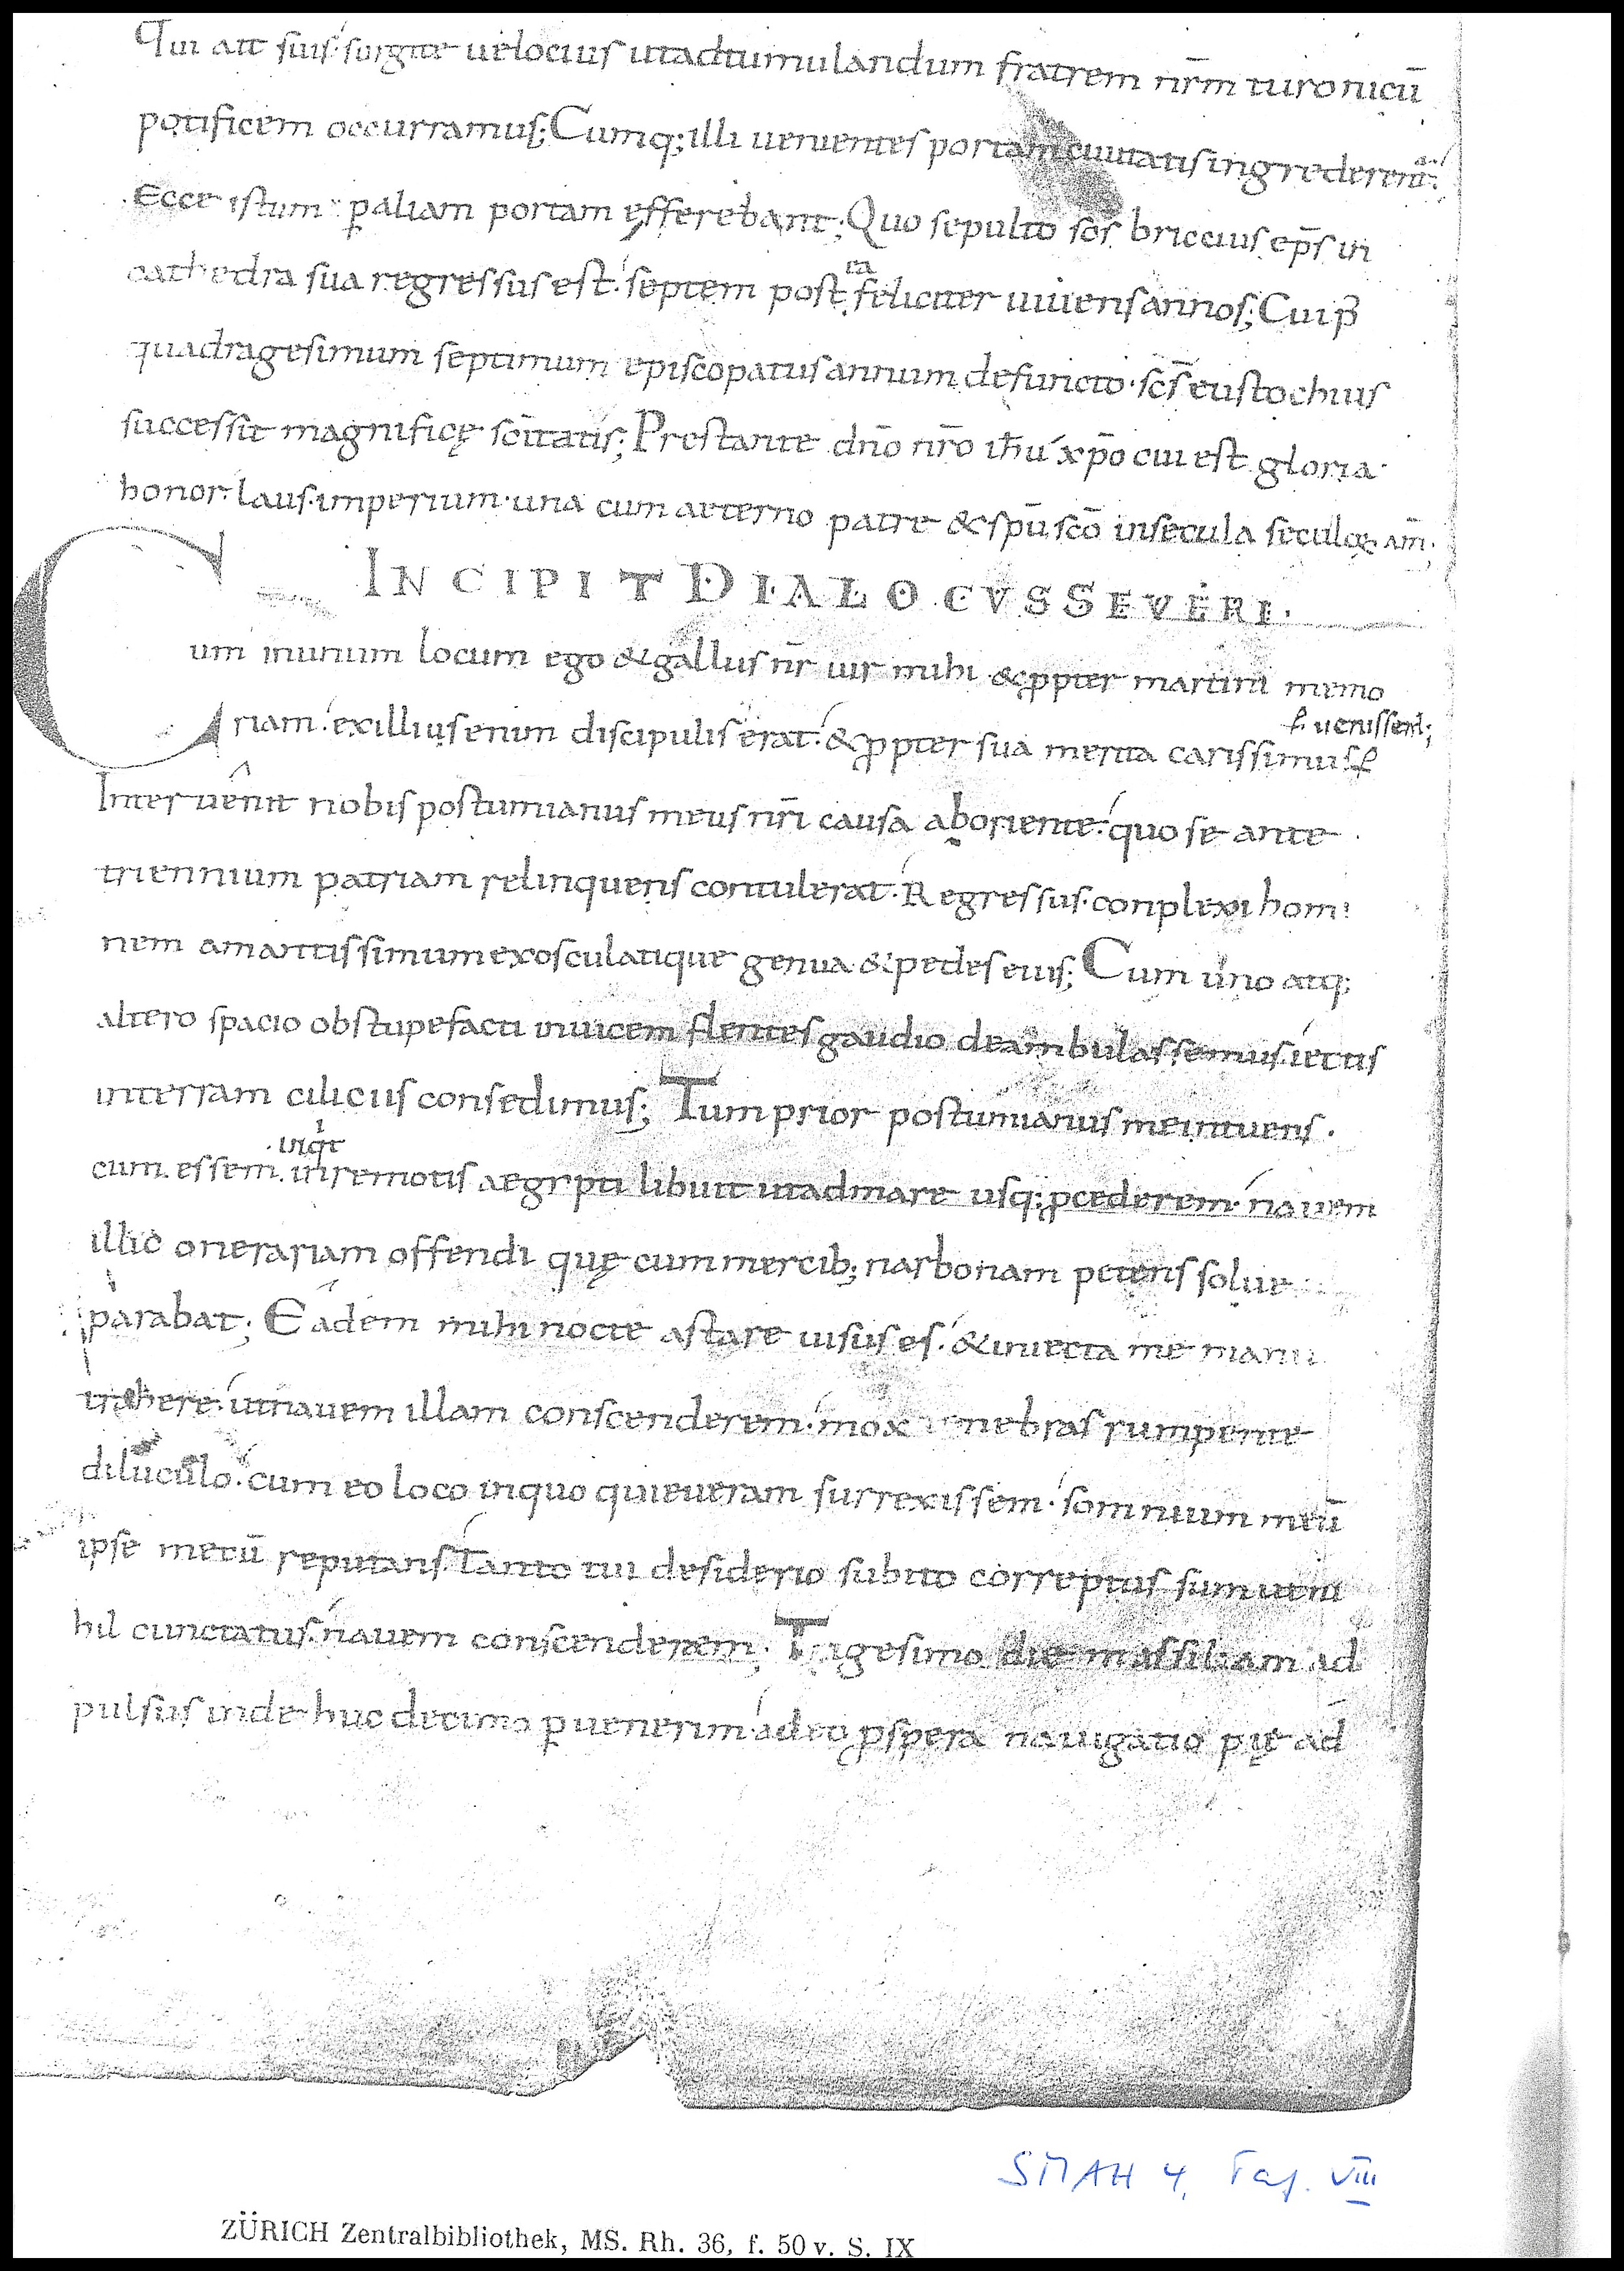 Qui ait suis surgite uelocius utadtumulandum fratrem nr̄m turonicū
potificem occurramus; Cumq; illi uenientes portam ciuitatis ingrederent̃
Ecce istum ꝑ aliam portam efferebant; Quo sepulto sc̄s briccius ep̄s in
cathedra sua regressus est septem post ea feliciter uiuens annos; Cui p̄
quadragesimum septimum episcopatus annum defuncto · sc̄s eustochius
successit magnificę sc̄itatis; Prestante dn̄o nr̄o ih̄u xp̄o cui est gloria·
honor· laus· imperium· una cum aeterno patre & sp̄u sc̄o insecula seculoꝝ am̄·
INCIPIT DIALOCVS SEVERI·
Cum inunum locum ego & gallus nr̄ uir mihi & ꝓpter martini memo
ł uenissent;
riam· exillius enim discipulis erat· & ꝓpter sua merita carissimus ł
Interuenit nobis postumianus meus nr̄i causa aboriente· quo se ante
triennium patriam relinquens contulerat· Regressus· conplexi homi
nem amantissimum exosculatique genua & pedes eius; Cum uno atq;
altero spacio obstupefacti inuicem flentes gaudio deambulassemus· iectis
interram ciliciis consedimus; Tum prior postumianus me intuens·
·inqt
cum essem· inremotis aegypti libuit utadmare usq; ꝓcederem· nauem
illic onerariam offendi quę cum mercib; narbonam petens solue
parabat; Eadem mihi nocte astare uisus es· & iniecta me manu
trahere· utnauem illam conscenderem· mox tenebras rumpente
diluculo· cum eo loco inquo quieueram surrexissem· somnium meū
ipse mecū reputans· Tanto tui desiderio subito correptus sum utni
hil cunctatus· nauem conscenderem· Trigesimo die massiliam ad
pulsus inde huc decimo ꝑuenerim· adeo ꝓspera nauigatio pię ad
SMAH 4, Taf. VIII
ZÜRICH Zentralbibliothek, MS. Rh. 36, f. 50 v. S. IX